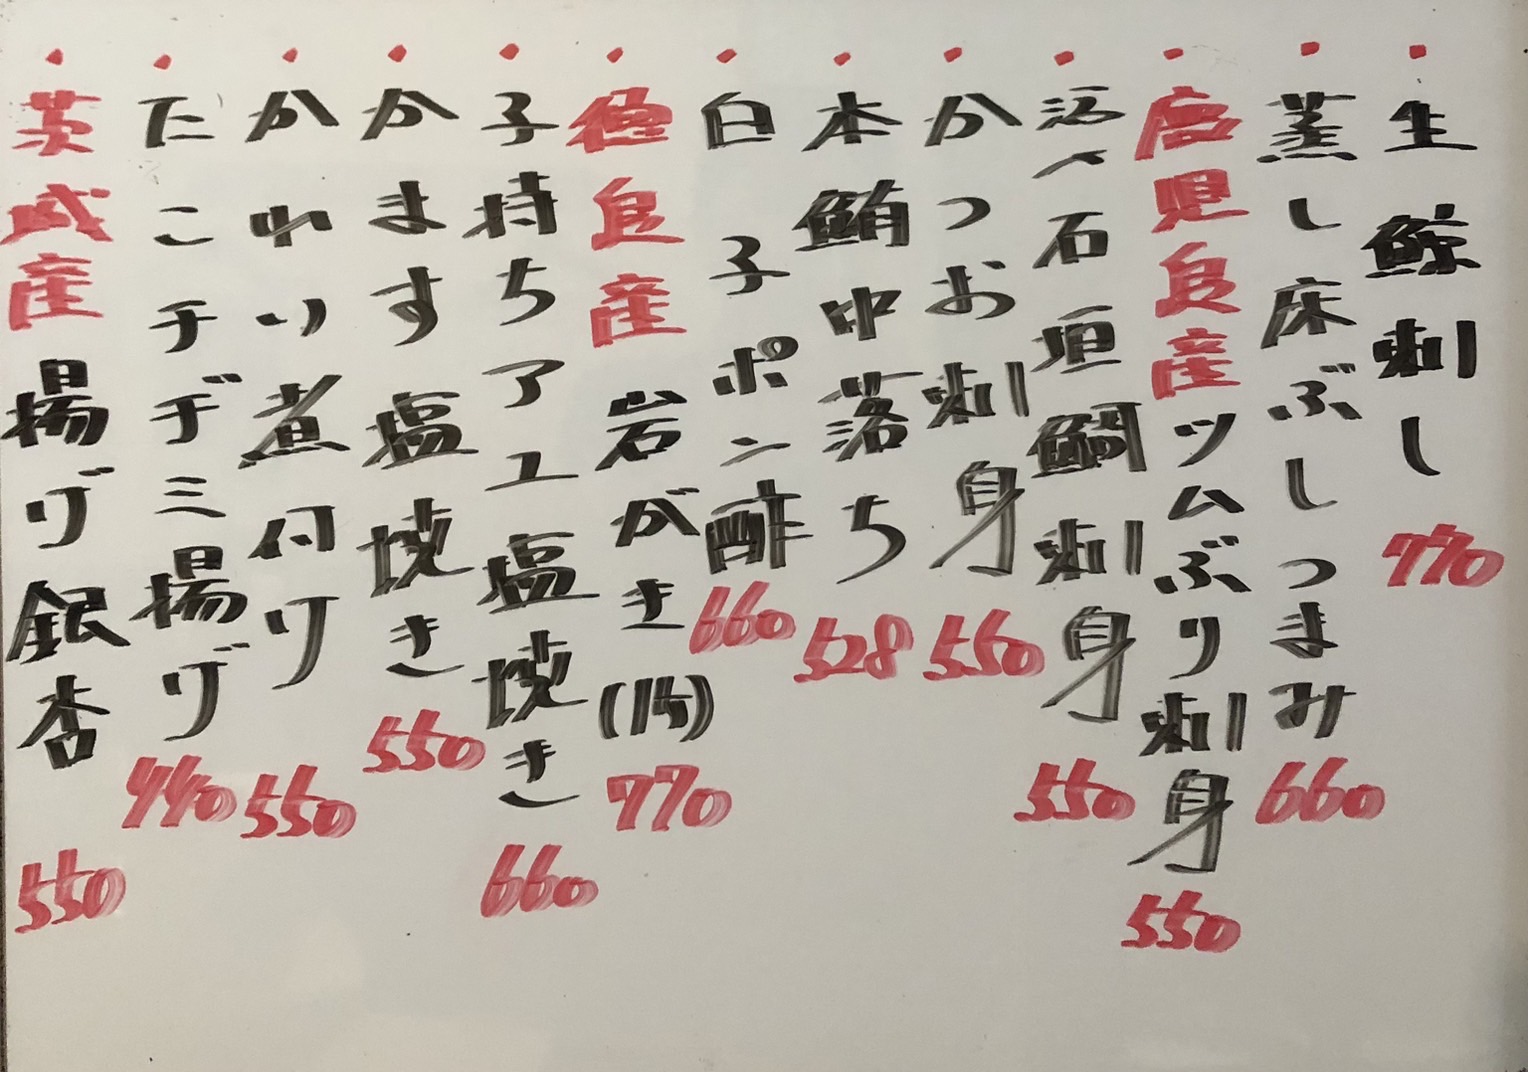 ・生鯨刺し 770
・蒸し床ぶしつまみ 660
・鹿児島産ツムぶり刺身 550
・活〆石垣鯛刺身 550
・かつお刺身 550
・本鮪中落ち 528
・白子ポン酢 660
・徳島産岩がき 770
・子持ちアユ塩焼き 660
・かます塩焼き 550
・かれい煮付け 550
・たこチヂミ揚げ 440
・茨城産揚げ銀杏 550